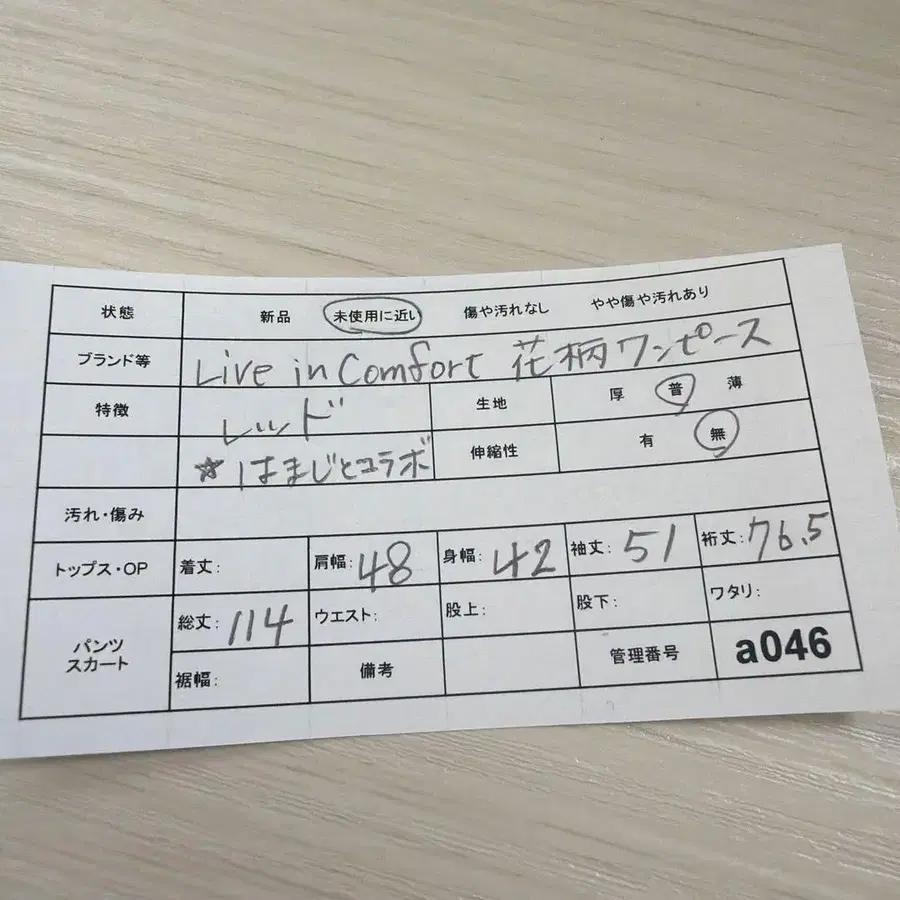 状態 新品 未使用に近い 傷や汚れなし やや傷や汚れあり
ブランド等 Live in Comfort 花柄ワンピース
特徴 レッド 生地 厚 普 薄
☆はまじとコラボ 伸縮性 有 無
汚れ・傷み
トップス・OP 着丈: 肩幅: 48 身幅: 42 袖丈: 51 裄丈: 76.5
パンツ スカート 総丈: 114 ウエスト: 股上: 股下: ワタリ:
裾幅: 備考 管理番号 a046